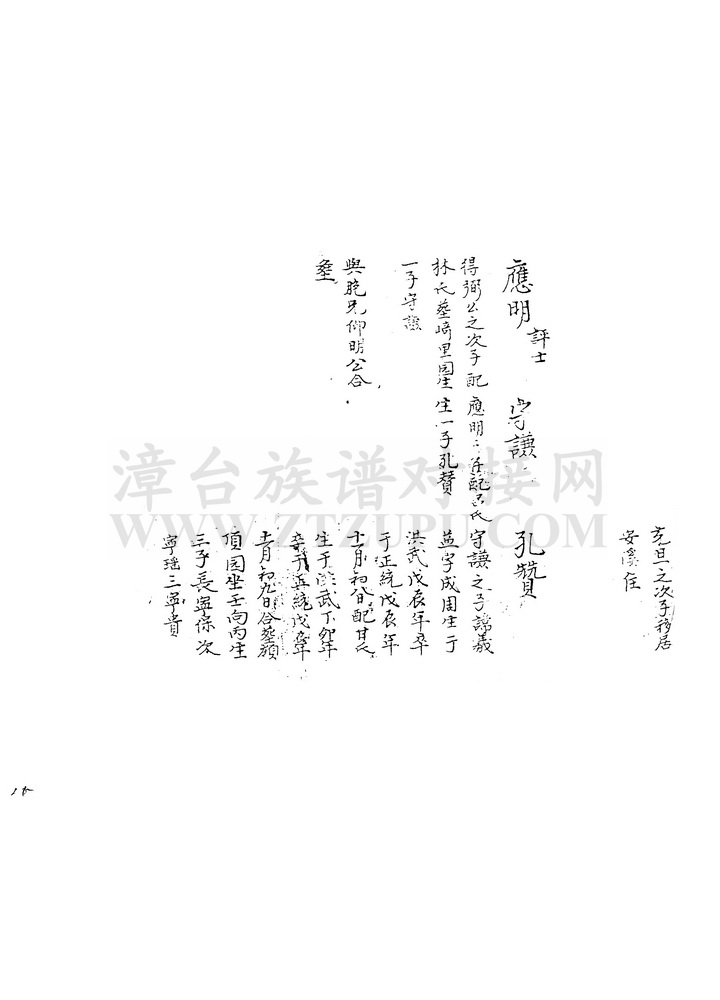 充旦之次子移居
安溪住
應明
評士
得弼公之次子配
林氏墓崎里园生
一子守謙
與胞兄仰明公合
墓
守謙
應明之子配呂氏
生一子孔贊
孔贊
守謙之子諱義
益字成周生于
洪武戊辰年卒
于正統戊辰年
十一月初八日配甘氏
生于洪武丁卯年
卒于正統戊辰年
十一月初九日合墓頭
頂园坐壬向丙生
三子長寧保次
寧瑶三寧貴
漳台族谱对接网
WWW.ZTZUPU.COM